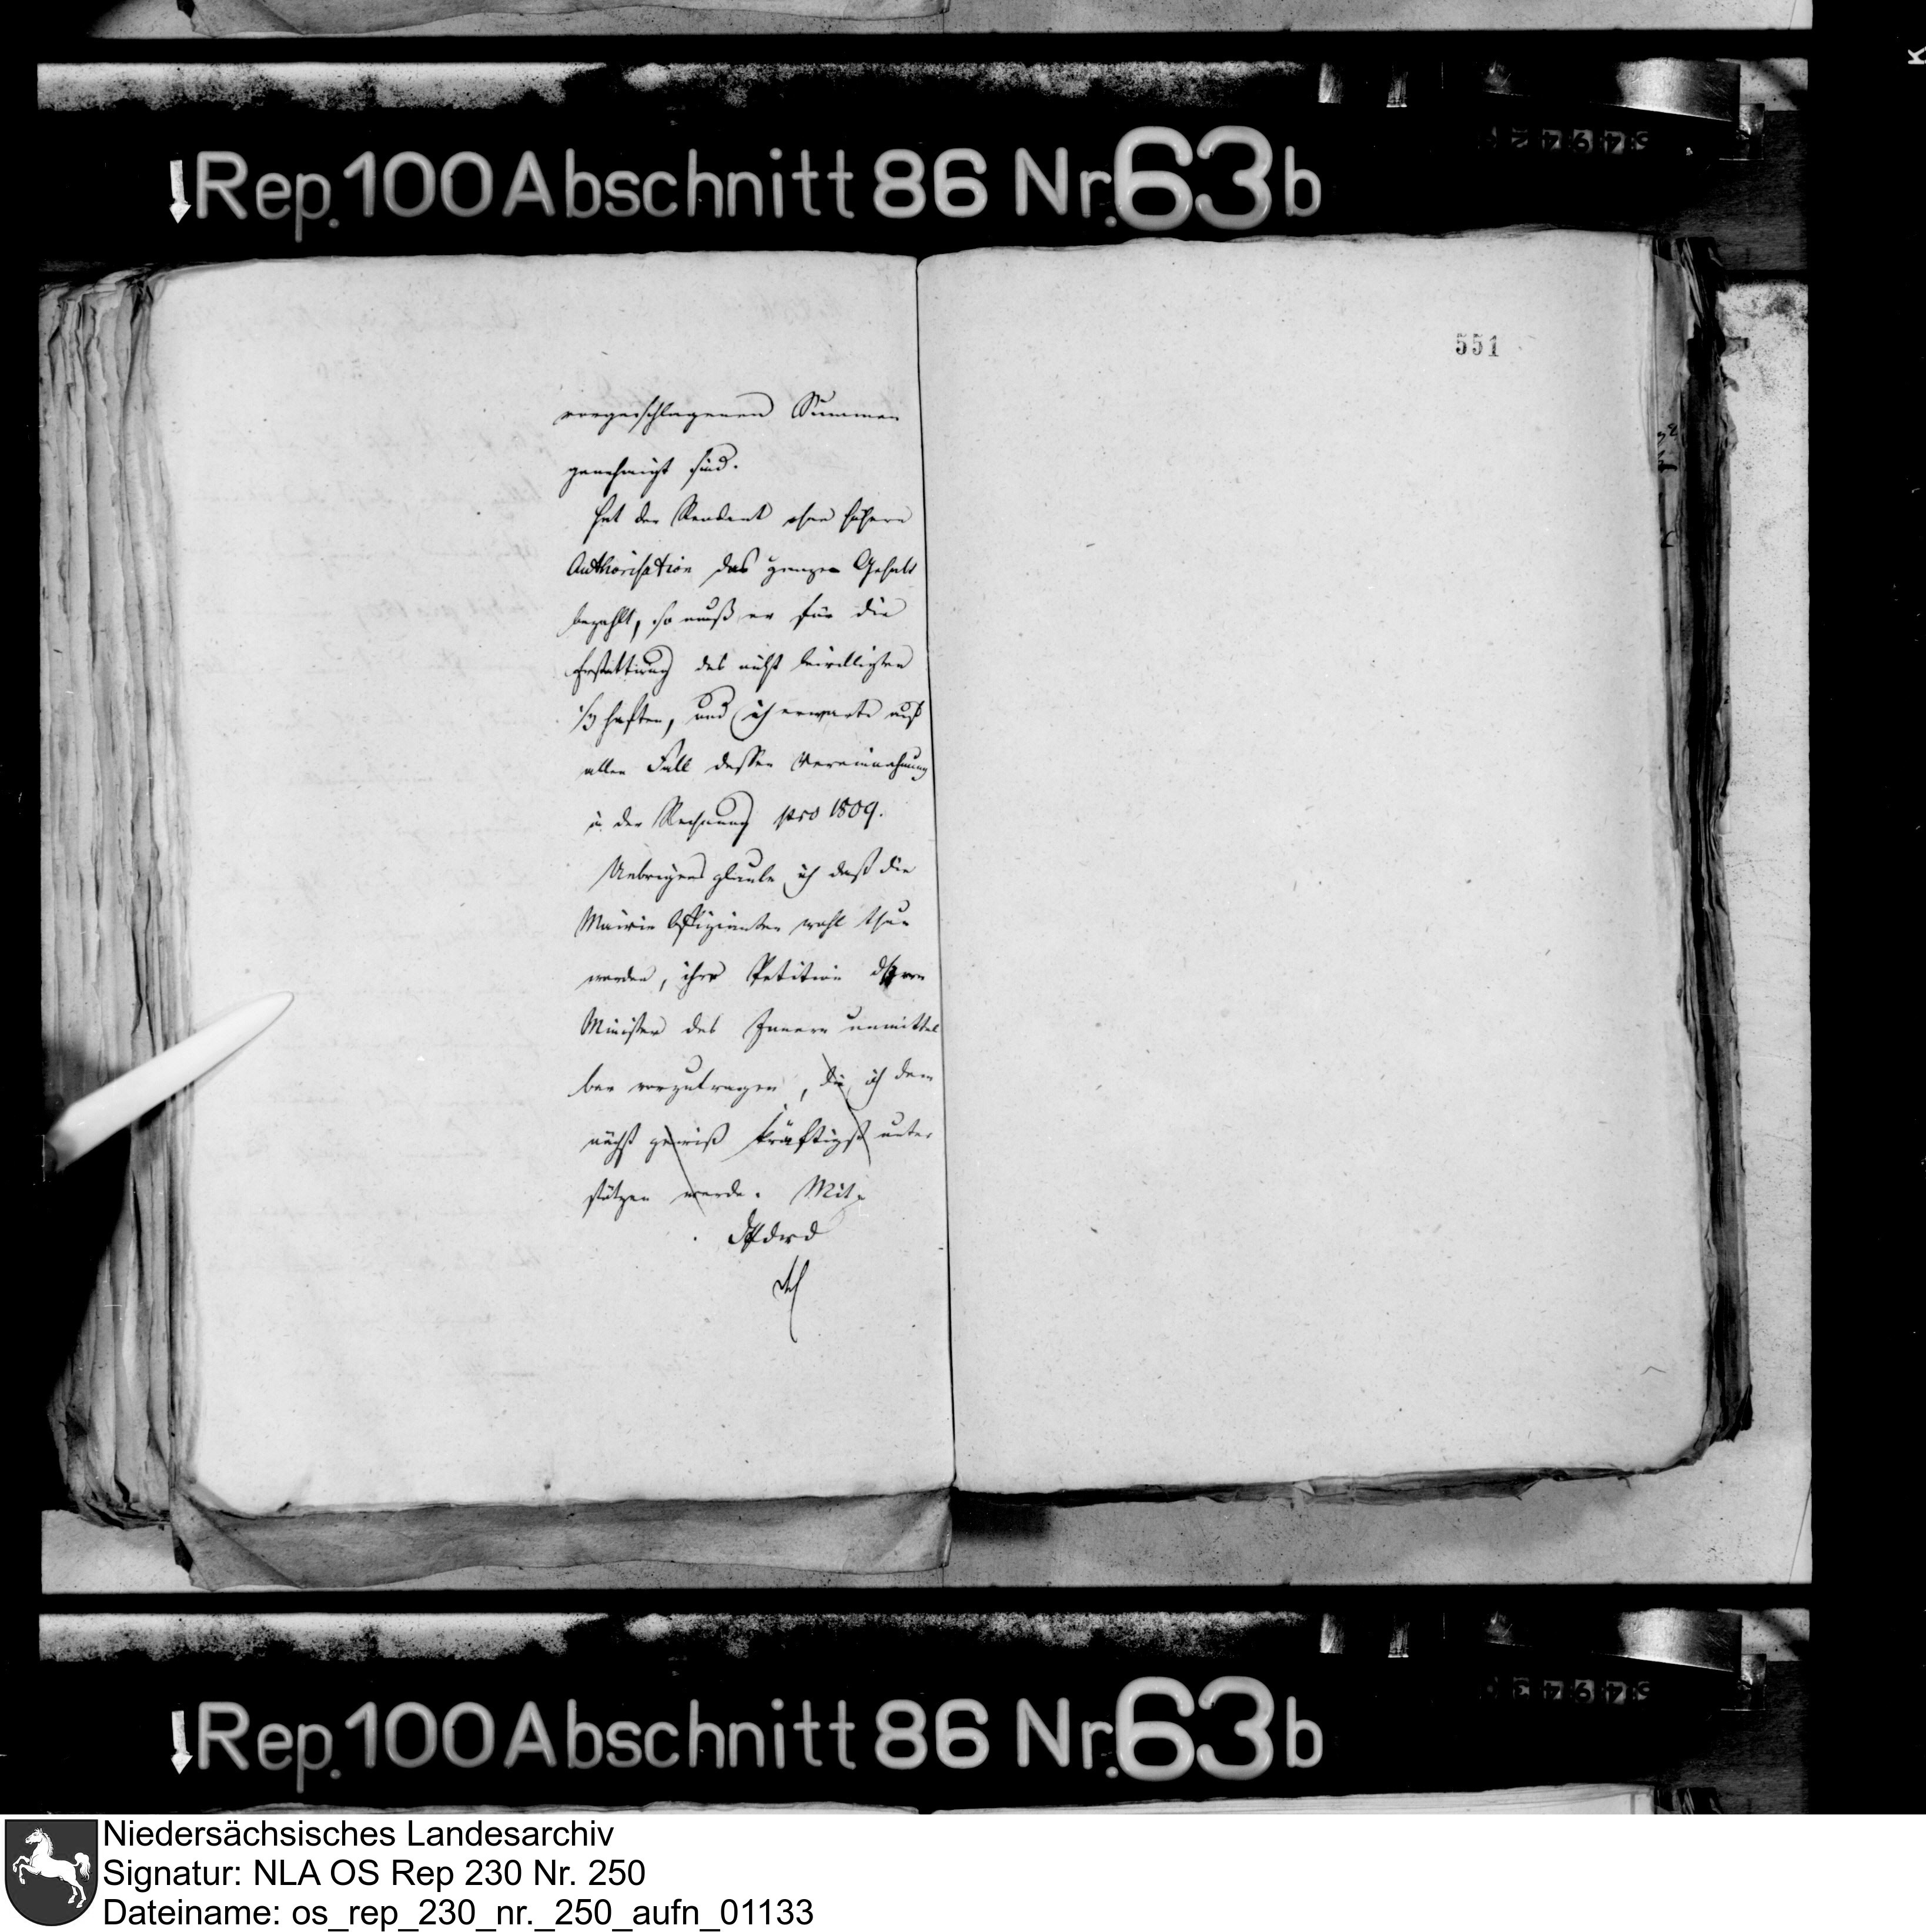 Rep. 100 Abschnitt 86 Nr. 63b
551
vorgeschlagenen Summen
genehmigt sind.
Hat der Rendant ohne höhere
Authorisation das ganze Gehalt
bezahlt, so muß er für die
Erstattung des nicht bewilligten
1/3 haften, und ich erwarte auf
allen Fall dessen Vereinnahmung
in der Rechnung pro 1809.
Uebrigens glaube ich daß die
Mairie Offizianten wohl thun
werden, ihre Petition
Minister des Innern unmittel
bar vorzutragen, die ich dem
nächst gewiß kräftigst unter
stützen werde. Mit
Rep. 100 Abschnitt 86 Nr. 63b
Niedersächsisches Landesarchiv
Signatur: NLA OS Rep 230 Nr. 250
Dateiname: os_rep_230_nr._250_aufn_01133